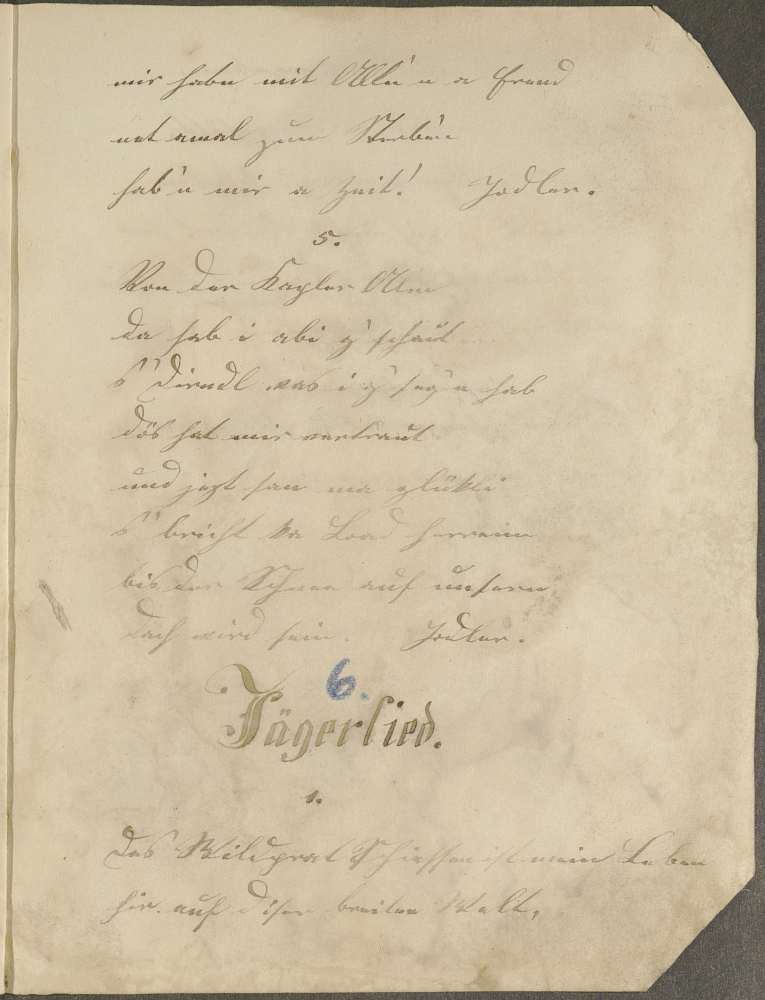 mir habn mit Alln a Freud
net amal zum Sterb'n
hab'n mir a Zeit! Jodler.
5.
Von der Kapler Alm
da hab i abi g'schaut
s' Dirndl was i g'seg'n hab
dös hat mir vertraut
und jezt san ma glükli
s' bricht ka Load herrein
bis der Schnee auf unsern
Dach wird sein. Jodler.
6.
Jägerlied.
1.
Das Wildprat Schiessen ist mein Leben
hir auf diser breiten Welt,